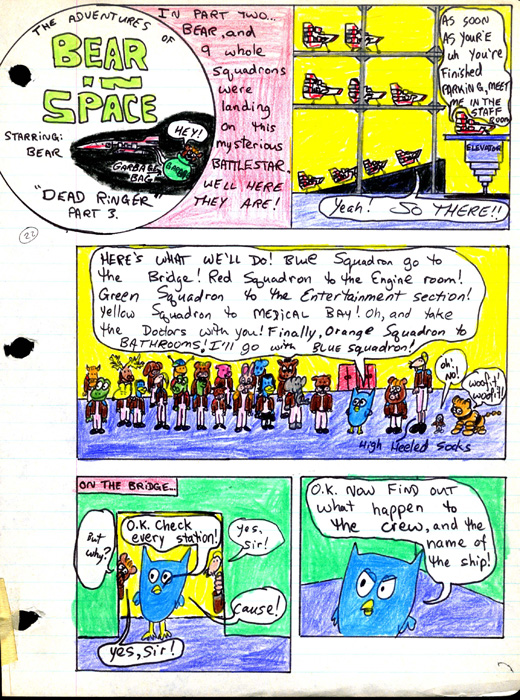 THE ADVENTURES OF
BEAR
IN
SPACE
STARRING:
BEAR
HEY!
GARBAGE
BAG
"DEAD RINGER"
PART 3.
IN PART TWO...
BEAR, and
9 whole
Squadrons
were
landing
on this
mysterious
BATTLESTAR.
WELL HERE
THEY ARE!
AS SOON
AS YOUR'E
uh You're
Finished
PARKING, MEET
ME IN THE
STAFF
ROOM
ELEVATOR
Yeah! SO THERE!!
22
HERE'S WHAT WE'LL DO! BLUE Squadron go to
the Bridge! Red Squadron to the Engine room!
Green Squadron to the Entertainment section!
Yellow Squadron to MEDICAL BAY! Oh, and take
the Doctors with you! Finally, Orange Squadron to
BATHROOMS! I'll go with BLUE squadron!
oh!
No!
woof!!
woof!!
High Heeled Socks
ON THE BRIDGE...
But
why?
O.K. Check
every station!
yes,
Sir!
cause!
yes, Sir!
O.K. NOW FIND OUT
what happen to
the crew, and the
name of
the ship!